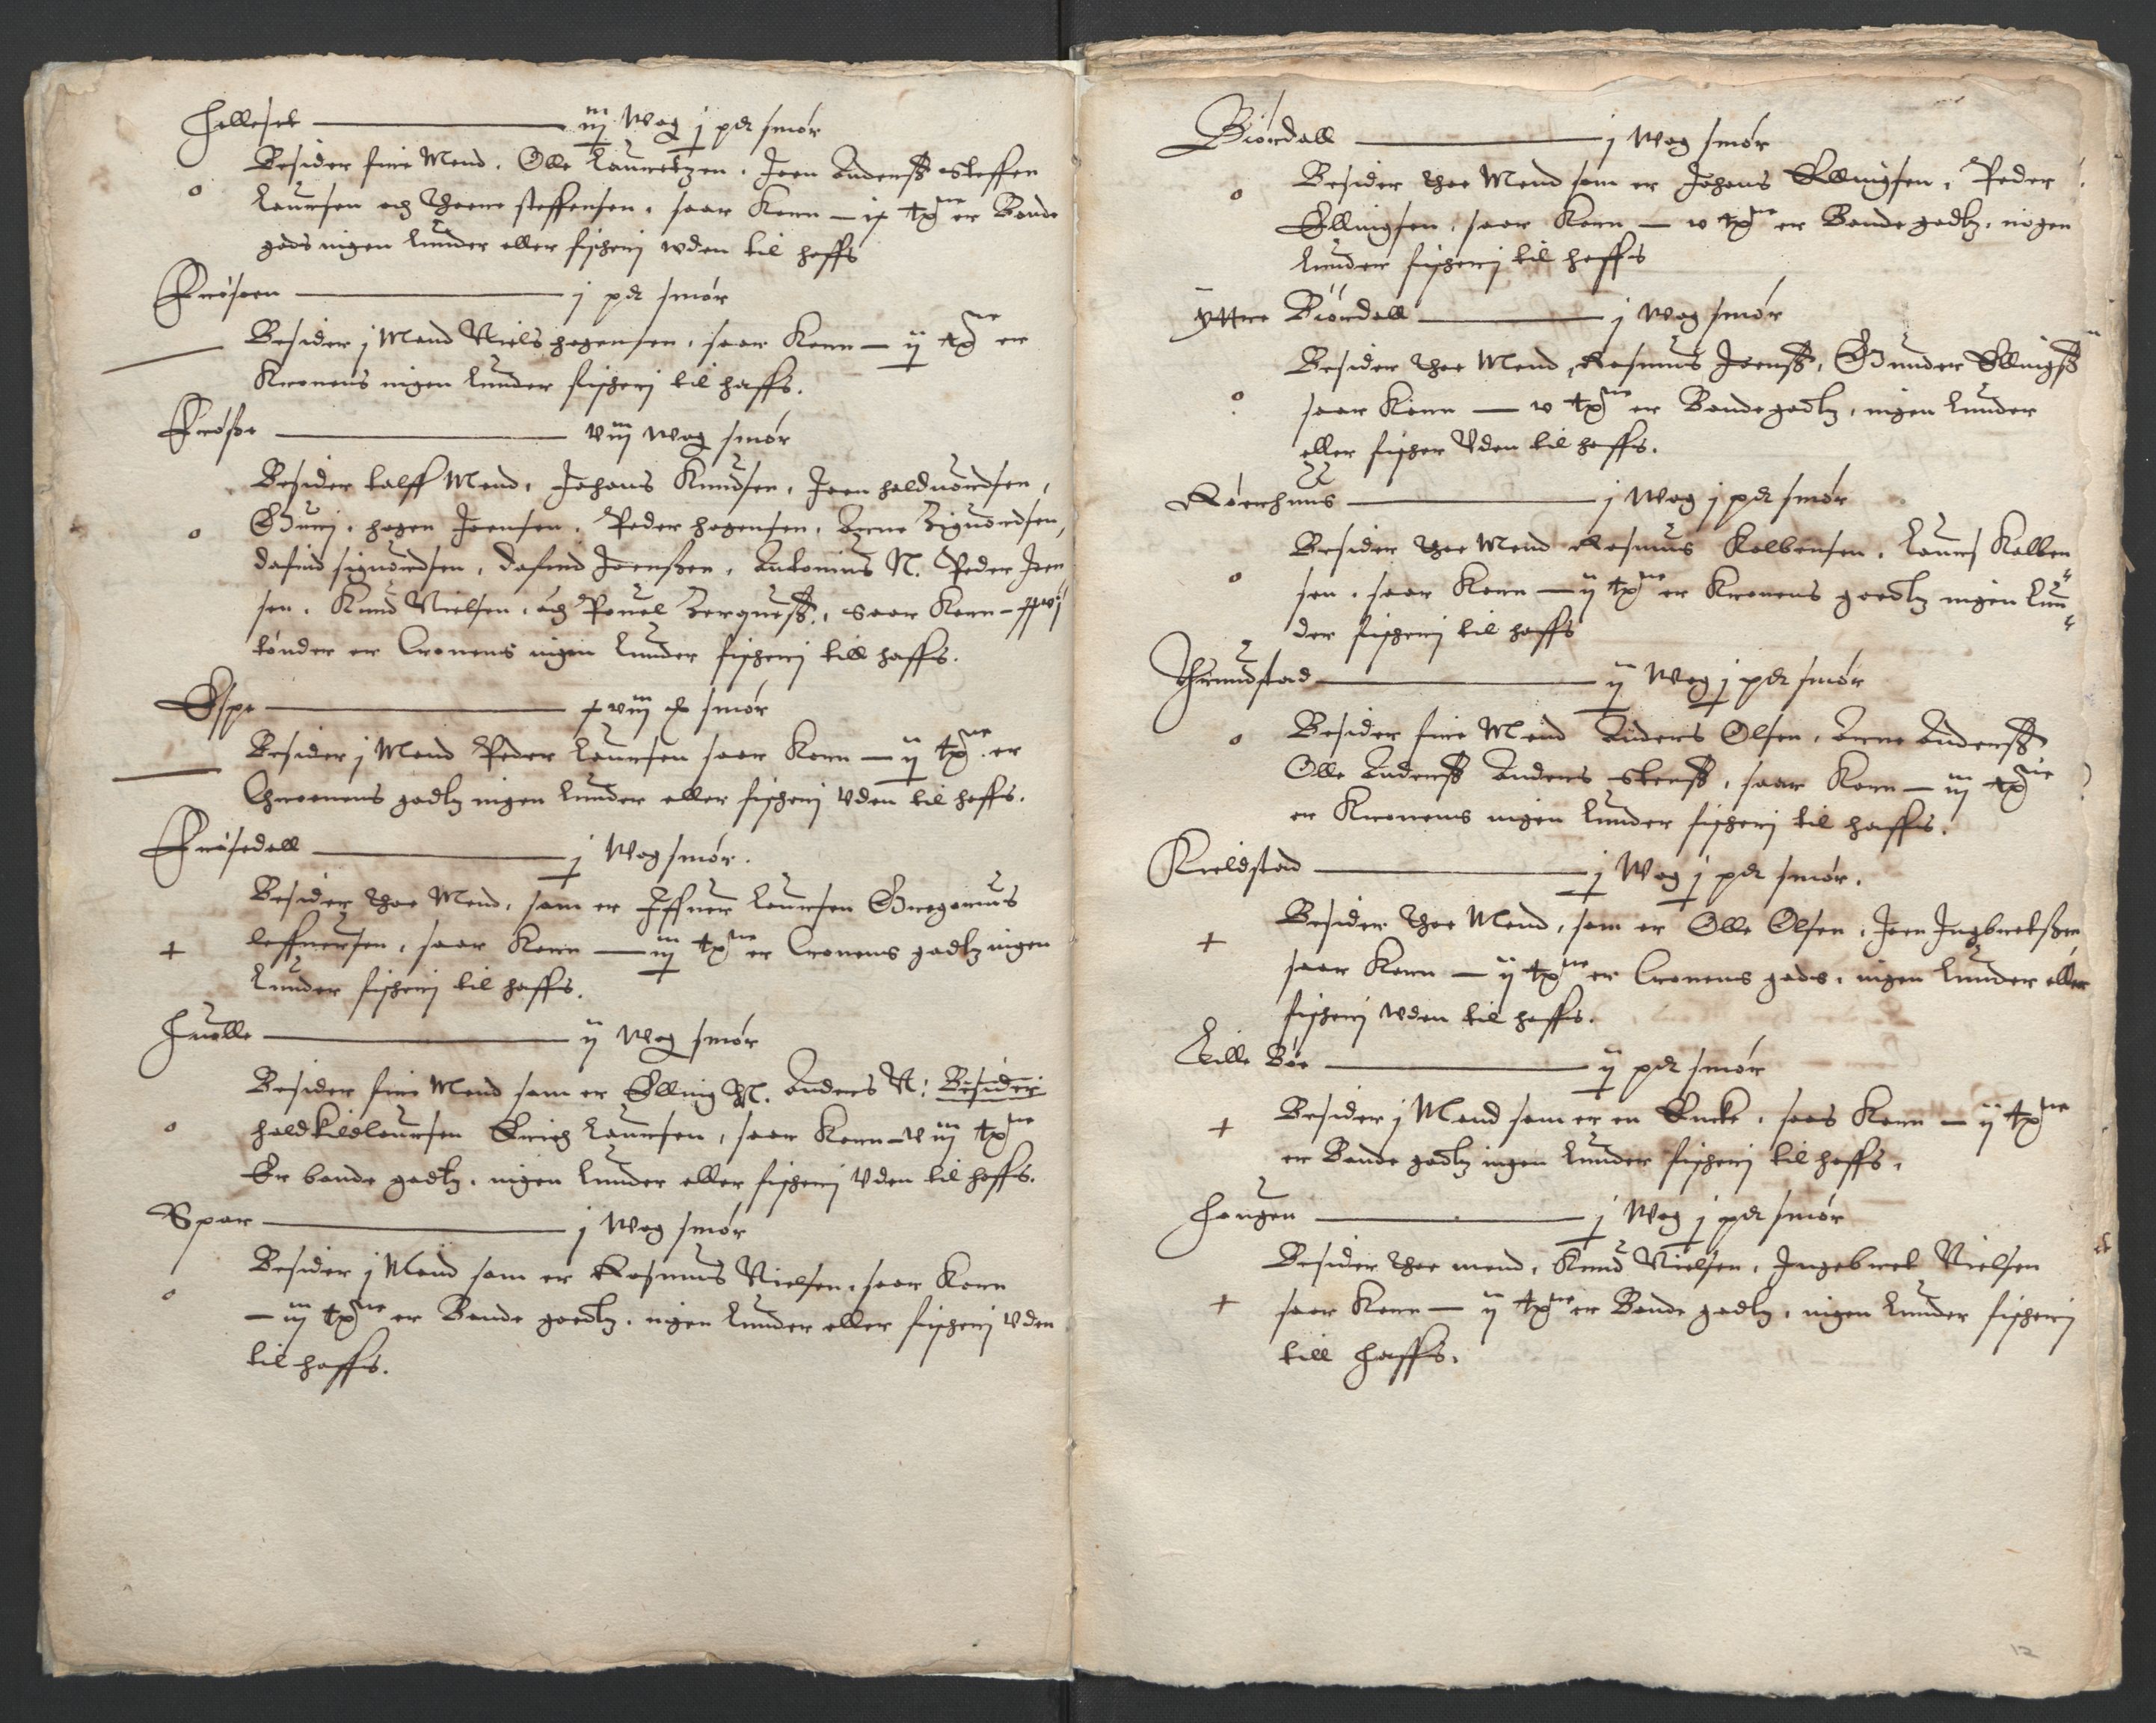 Hellesett — iiij Wog j pd smør
Besider fire Mend. Olle Lauretzen. Joen Anderss Steffen
Laursen och Thorre steffensen. saar Korn — ix tønner er Bonde
gods ingen Lunder eller fischerj wden til haffs
Frøsoen — j pd smør
Besider j Mand Niels hogensen. saar Korn — ij tønner er
Kronens ingen Lunder fischerj til haffs.
Frøsse — viij wog smør
Besider talff Mend. Johans Knudsen, Joen halduordsen,
Gurj. hogen Joensen. Peder hogensen. Arne Siguordsen,
dafind siguordsen, Dafind Joenssen, Antonius N. Peder Joen
sen. Knud Nielsen, och Pouel Berguess., Saar Korn — xxvj
tønder er Cronens ingen Lunder fischerj till haffs.
Espe — xviij ℔ smør
Besider j Mand Peder Laursen saar Korn — ij tønner er
Chronens godtz ingen Lunder eller fischerj Vden til haffs.
Frøsedall — j Wog smør.
Besider thoe Mend, som er Iffuer Laursen Gregorius
Jeffuersen, saar Korn — iiij tønner er Cronens godtz ingen
Lunder fischerj til haffs.
Huolle — ij Wog smør
Besider fire Mend som er Elling N. Anders N: Besider
haldkildlaursen Erich Laursen, saar Korn — viij tønner
Er bonde godtz. ingen Lunder eller fischerj Vden til haffs.
Spor — j Wog smør
Besider j Mand som er Rasmus Nielsen, saar Korn
— iij tønner er Bonde goedtz. ingen Lunder eller fischerj Vden
til haffs.
Biordall — j Wog smør
Besider thoe Mend som er Johans Ellingsen, Peder
Ellingsen, saar Korn — v tønner er Bonde godtz. ingen
Lunder fischerj til haffs
Yttre Biordall — j Wog smør
Besider thoe Mend, Rasmus Joenss, Gunder Ellingss
saar Korn — v tønner er Bonde godtz, ingen Lunder
eller fischer Vden til haffs.
Røerhuus — j Wog j pd smør
Besider thoe Mend Rasmus Kolbensen. Laurs Kolben
sen. saar Korn — ij tønner er Kronens goedtz ingen Lun
der fischerj til haffs
Thrundstad — ij Wog j pd smør
Besider fire Mend Anders Olsen, Arne Anderss
Olle Anderss Anders Stenss, saar Korn — iij tønner
er Kronens ingen Lunder fischerj til haffs.
Kieldstad — j Wog j pd smør.
Besider thoe Mend, som er Olle Olsen, Joen Ingbretssen,
saar Korn — ij tønner er Cronens gods. ingen Lunder eller
fischerj wden til haffs.
Lille Bøe — ij pd smør
Besider j Mand som er en Encke, saar Korn — ij tønner
er Bonde godtz ingen Lunder fischerj til haffs,
Hougen — j Wog j pd smør
Besider thoe mend, Knud Nielsen, Ingebret Nielsen
saar Korn — ij tønner er Bonde godtz, ingen Lunder fischerj
till Haffs.
12